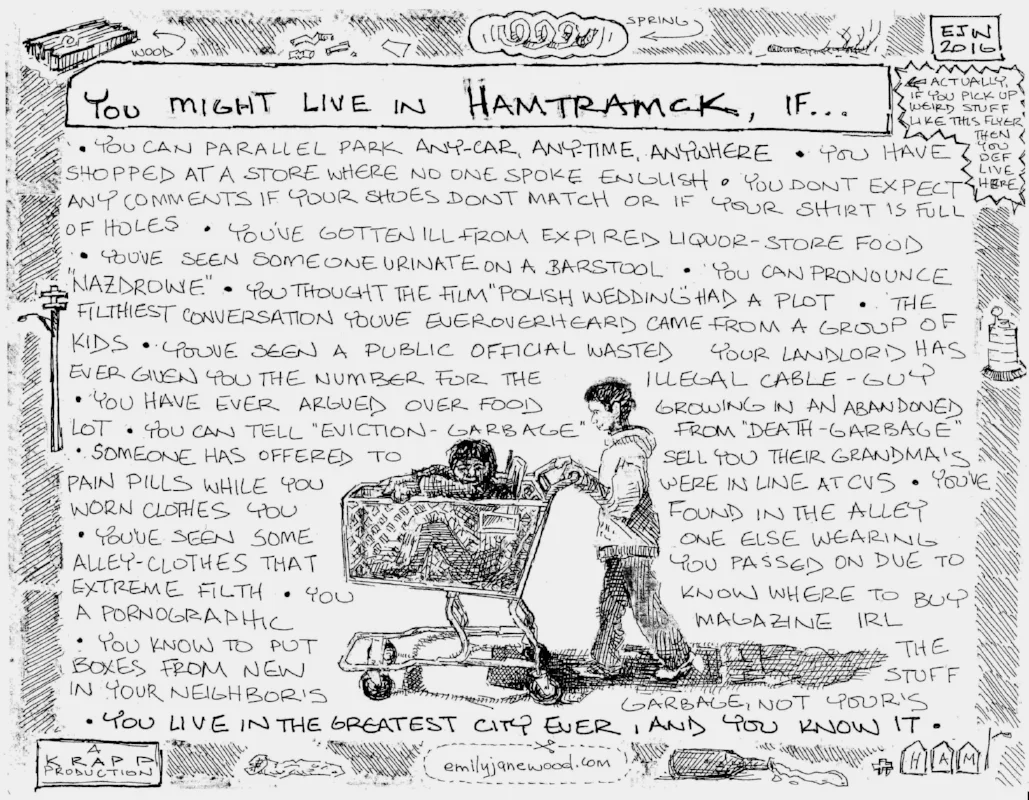 WOOD
SPRING
EJW
2016
YOU MIGHT LIVE IN HAMTRAMCK, IF...
ACTUALLY,
IF YOU PICK UP
WEIRD STUFF
LIKE THIS FLYER,
THEN
YOU
DEF
LIVE
HERE
• YOU CAN PARALLEL PARK ANY-CAR, ANY-TIME, ANYWHERE • YOU HAVE
SHOPPED AT A STORE WHERE NO ONE SPOKE ENGLISH • YOU DONT EXPECT
ANY COMMENTS IF YOUR SHOES DONT MATCH OR IF YOUR SHIRT IS FULL
OF HOLES • YOU'VE GOTTEN ILL FROM EXPIRED LIQUOR-STORE FOOD
• YOU'VE SEEN SOMEONE URINATE ON A BARSTOOL • YOU CAN PRONOUNCE
"NAZDROWE" • YOU THOUGHT THE FILM "POLISH WEDDING" HAD A PLOT • THE
FILTHIEST CONVERSATION YOUVE EVER OVERHEARD CAME FROM A GROUP OF
KIDS • YOUVE SEEN A PUBLIC OFFICIAL WASTED YOUR LANDLORD HAS
EVER GIVEN YOU THE NUMBER FOR THE ILLEGAL CABLE-GUY
• YOU HAVE EVER ARGUED OVER FOOD GROWING IN AN ABANDONED
LOT • YOU CAN TELL "EVICTION-GARBAGE" FROM "DEATH-GARBAGE"
• SOMEONE HAS OFFERED TO SELL YOU THEIR GRANDMA'S
PAIN PILLS WHILE YOU WERE IN LINE AT CVS • YOU'VE
WORN CLOTHES YOU FOUND IN THE ALLEY
• YOU'VE SEEN SOME ONE ELSE WEARING
ALLEY-CLOTHES THAT YOU PASSED ON DUE TO
EXTREME FILTH • YOU KNOW WHERE TO BUY
A PORNOGRAPHIC MAGAZINE IRL
• YOU KNOW TO PUT THE
BOXES FROM NEW STUFF
IN YOUR NEIGHBOR'S GARBAGE, NOT YOUR'S
• YOU LIVE IN THE GREATEST CITY EVER, AND YOU KNOW IT •
A
KRAPP
PRODUCTION
emilyjanewood.com
HAM